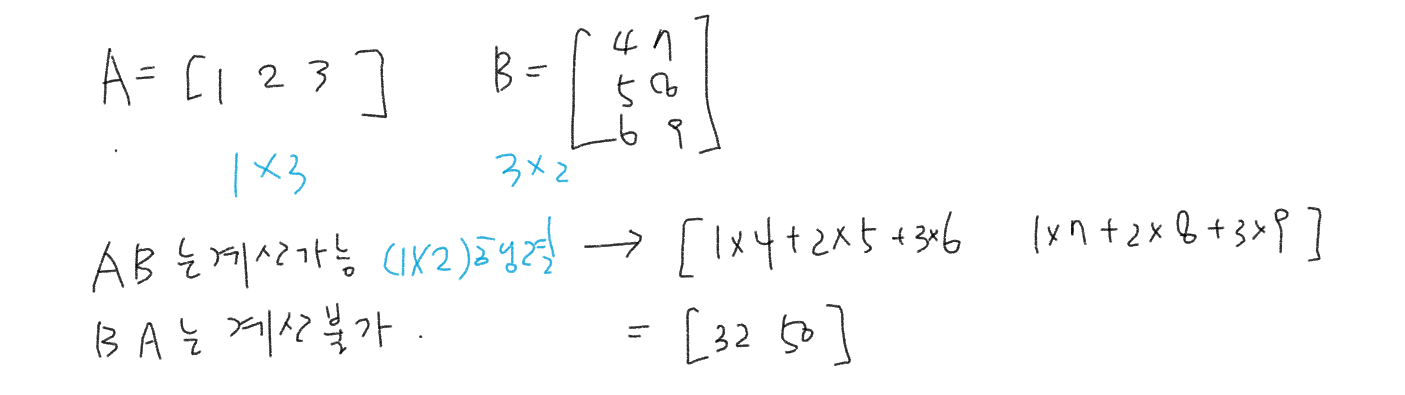 A = [1 2 3] B = [4 7
5 8
6 9]
1×3 3×2
AB는 계산가능 (1×2)행렬 → [1×4+2×5+3×6 1×7+2×8+3×9]
BA는 계산불가.
= [32 50]